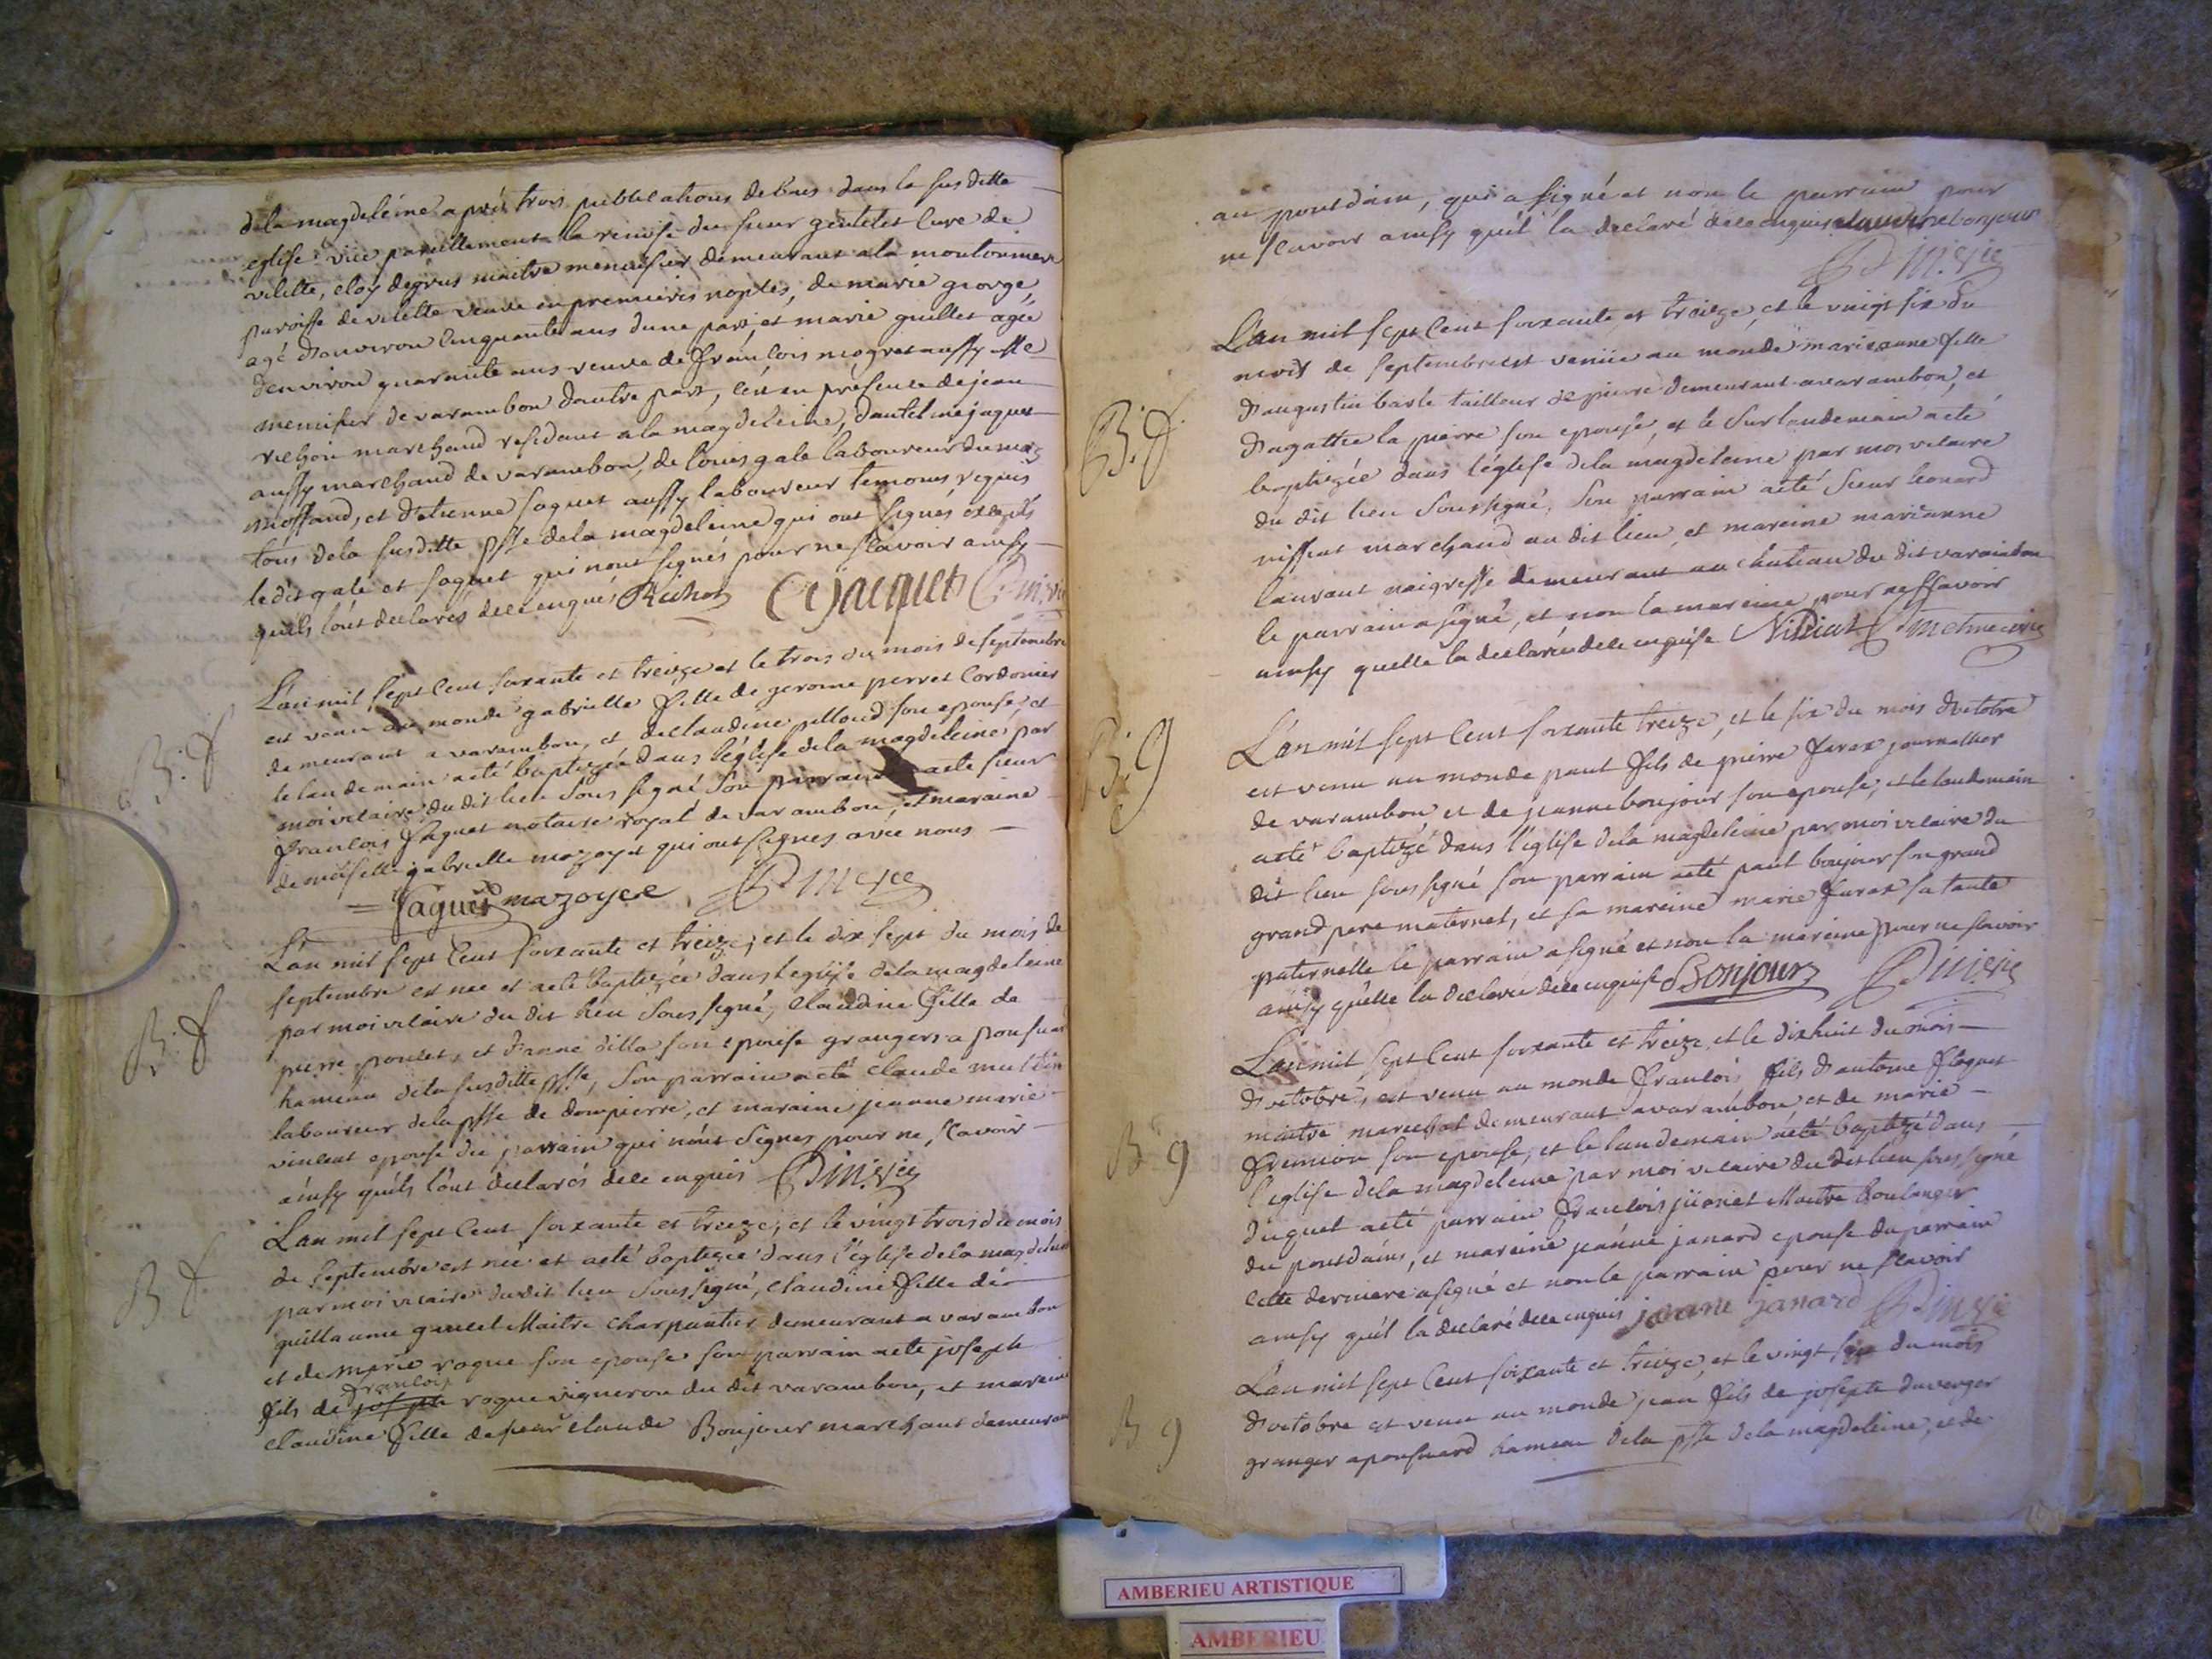 dela magdeléine après trois publications de bans dans la susditte
eglise vüe pareillement la remise du sieur gentelet curé de
vilette, eloy degrus maitre menuisier demeurant a la moutonniere
paroisse de vilette veuve en premieres noples, de marie george,
agé d'environ cinquante ans dune part, et marie guillet agée
d'environ quarante ans veuve de françois mogret aussy me
menusier de varambon dautre part, ce en présence de jean
richon marchand residant a la magdeleine, dantelme jaquet
aussy marchand de varambon, de louis gale laboureur du mas
moffand, et d'etienne saquet aussy laboureur temoins requis
tous dela susditte psse dela magdeleine qui ont signés exceptés
ledit gale et saquet qui n'ont signés pour ne scavoir ainsy
quils l'ont declarés de ce enquis Richon C jacquet
L'an mil sept cent soixante et treize et le trois du mois de septembre
est venu au monde gabrielle fille de gerome perret cordonier
demeurant a varambon, et de claudine pilloud son epouse, et
le landemain a eté baptizée dans l'église dela magdeleine par
moi vicaire du dit lieu sous signé son parrain a eté sieur
françois saquet notaire royal de varambon, et maraine
demoiselle gabrielle mazoyer qui ont signés avec nous
= Saquet mazoyer
L'an mil sept cent soixante et treize, et le dix sept du mois de
septembre est née et a eté baptizée dans leglise dela magdeleine
par moi vicaire du dit lieu sous signé, claudine fille de
pierre poncet, et d'anne dilla son epouse grangers a ponsuard
hameau dela susditte psse, son parrain a eté claude
laboureur dela psse de dompierre, et maraine jeanne marie
vincent epouse du parrain qui n'ont signés pour ne scavoir
ainsy quils l'ont declarés de ce enquis
L'an mil sept cent soixante et treize, et le vingt trois du mois
de septembre est née et a eté baptizée dans l'église de la magdeleine
par moi vicaire dudit lieu sous signé, claudine fille de
guillaume gancel Maitre charpantier demeurant a varambon
et de marie rogue son epouse son parrain a eté joseph
françois
fils de joseph rogue vigneron du dit varambon, et maraine
claudine fille de sieur claude Bonjour marchant demeurant
B. S.
B. S
B S
au pont dain, qui a signé et non le parrain pour
ne scavoir ainsy qu'il la declaré de ce enquis claudine bonjour
L'an mil sept cent soixante et treize, et le vingt six du
mois de septembre est venüe au monde marianne fille
d'augustin barle tailleur de pierre demeurant a varambon, et
d'agathe la pierre son epouse, et le surlandemain a eté
baptizée dans l'église dela magdeleine par moi vicaire
du dit lieu soussigné. Son parrain a eté sieur leonard
nissiat marchand au dit lieu et mareine marianne
laurant naigresse demeurant au chateau du dit varambon
le parrain a signé, et non la mareine pour ne scavoir
ainsy quelle la declarée de ce enquise Nissiat
L'an mil sept cent soixante treize, et le six du mois d'octobre
est venu au monde paul fils de pierre farax journallier
de varambon et de jeanne bonjour son epouse, et le landemain
a eté baptizé dans l'église dela magdeleine par moi vicaire du
dit lieu soussigné son parrain a eté paul bonjour son grand
grand pere maternel, et sa mareine marie farax sa tante
paternelle le parrain a signé et non la mareine pour ne scavoir
ainsy qu'elle la declarée de ce enquise Bonjour
L'an mil sept cent soixante et treize, et le dixhuit du mois
d'octobre, est venu au monde françois fils d'antoine floquet
maitre marechal demeurant a varambon et de marie
fremion son epouse, et le landemain a eté baptizé dans
l'église dela magdeleine par moi vicaire du dit lieu sous signé
duquel a eté parrain françois jüanet Maitre boulanger
du pont dains, et mareine jeanne janard epouse du parrain
cette derniere a signé et non le parrain pour ne scavoir
ainsy qu'il la declaré de ce enquis jeanne janard
L'an mil sept cent soixante et treize, et le vingt six du mois
d'octobre est venu au monde jean fils de josepte duverger
granger a ponsuard hameau dela psse dela magdeleine, et de
B. S.
B. g
B g
B g
AMBERIEU ARTISTIQUE
AMBERIEU